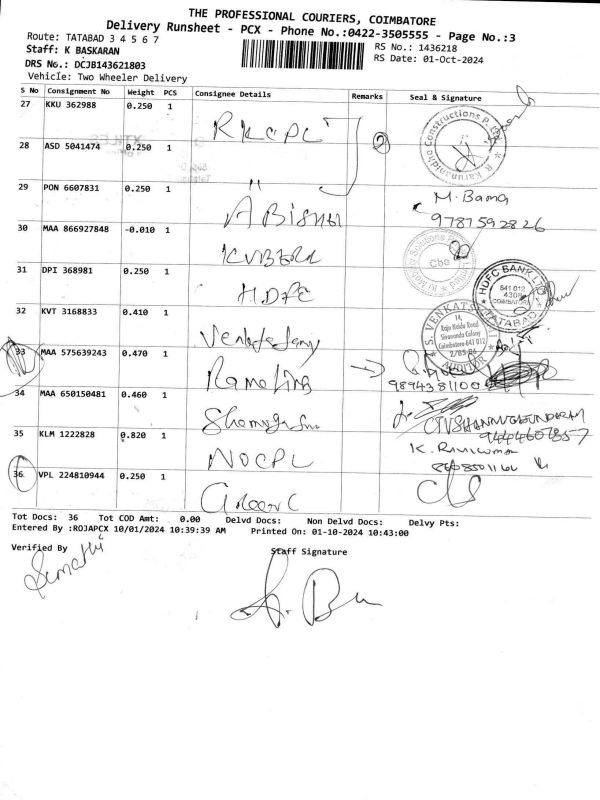 THE PROFESSIONAL COURIERS, COIMBATORE
Delivery Runsheet - PCX - Phone No.:0422-3505555 - Page No.:3
Route: TATABAD 3 4 5 6 7 RS No.: 1436218
Staff: K BASKARAN RS Date: 01-Oct-2024
DRS No.: DCJB143621803
Vehicle: Two Wheeler Delivery
S No Consignment No Weight PCS Consignee Details Remarks Seal & Signature
27 KKU 362988 0.250 1 RKCPL
28 ASD 5041474 0.250 1 "
R. Karunanidhi Constructions P. Ltd.
29 PON 6607831 0.250 1 M. Bama
9787592826
30 MAA 866927848 -0.010 1 KVBERA
Cbe
31 DPI 368981 0.250 1 HDFC
HDFC BANK LTD
641 012
4308
COIMBATORE
TATABAD
32 KVT 3168833 0.410 1
S. VENKATS
14,
Raju Naidu Road
Sivananda Colony
Coimbatore-641 012
AUDITOR
33 MAA 575639243 0.470 1 Ramaling
9894381100
34 MAA 650150481 0.460 1
CTVSHANMUGASUNDARAM
9444607857
35 KLM 1222828 0.820 1 NOCPL K. Ravikumar
8608501166
36 VPL 224810944 0.250 1 GreenC
Tot Docs: 36 Tot COD Amt: 0.00 Delvd Docs: Non Delvd Docs: Delvy Pts:
Entered By :ROJAPCX 10/01/2024 10:39:39 AM Printed On: 01-10-2024 10:43:00
Verified By Staff Signature
Sumathi